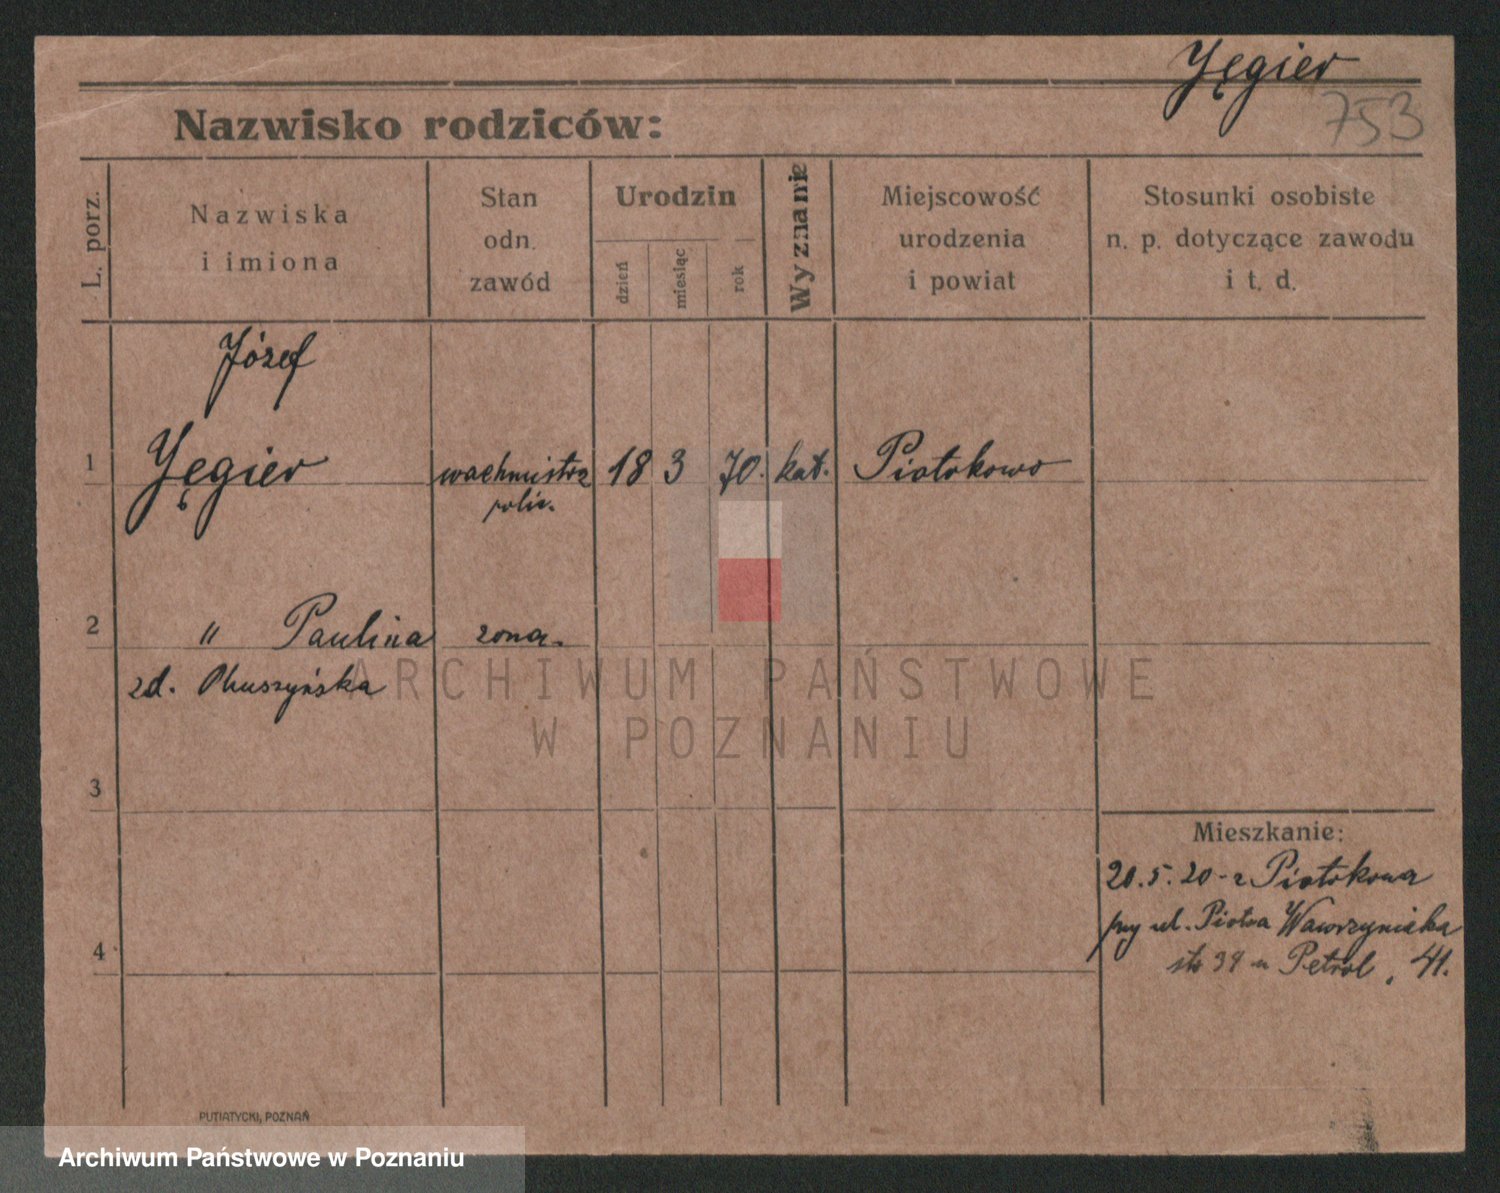 Jęgier
753
Nazwisko rodziców:
L. porz.
Nazwiska
i imiona
Stan
odn.
zawód
Urodzin
dzień
miesiąc
rok
Wyznanie
Miejscowość
urodzenia
i powiat
Stosunki osobiste
n. p. dotyczące zawodu
i t. d.
Józef
1 Jęgier wachmistrz 18 3 70. kat. Piotrkowo
polic.
2 " Paulina żona.
zd.
3
Mieszkanie:
20.5.20 - z Piotrkowa
przy ul. Piotra Wawrzyniaka
39 u Petrol, 41.
4
PUTIATYCKI, POZNAŃ
ARCHIWUM PAŃSTWOWE
W POZNANIU
Archiwum Państwowe w Poznaniu